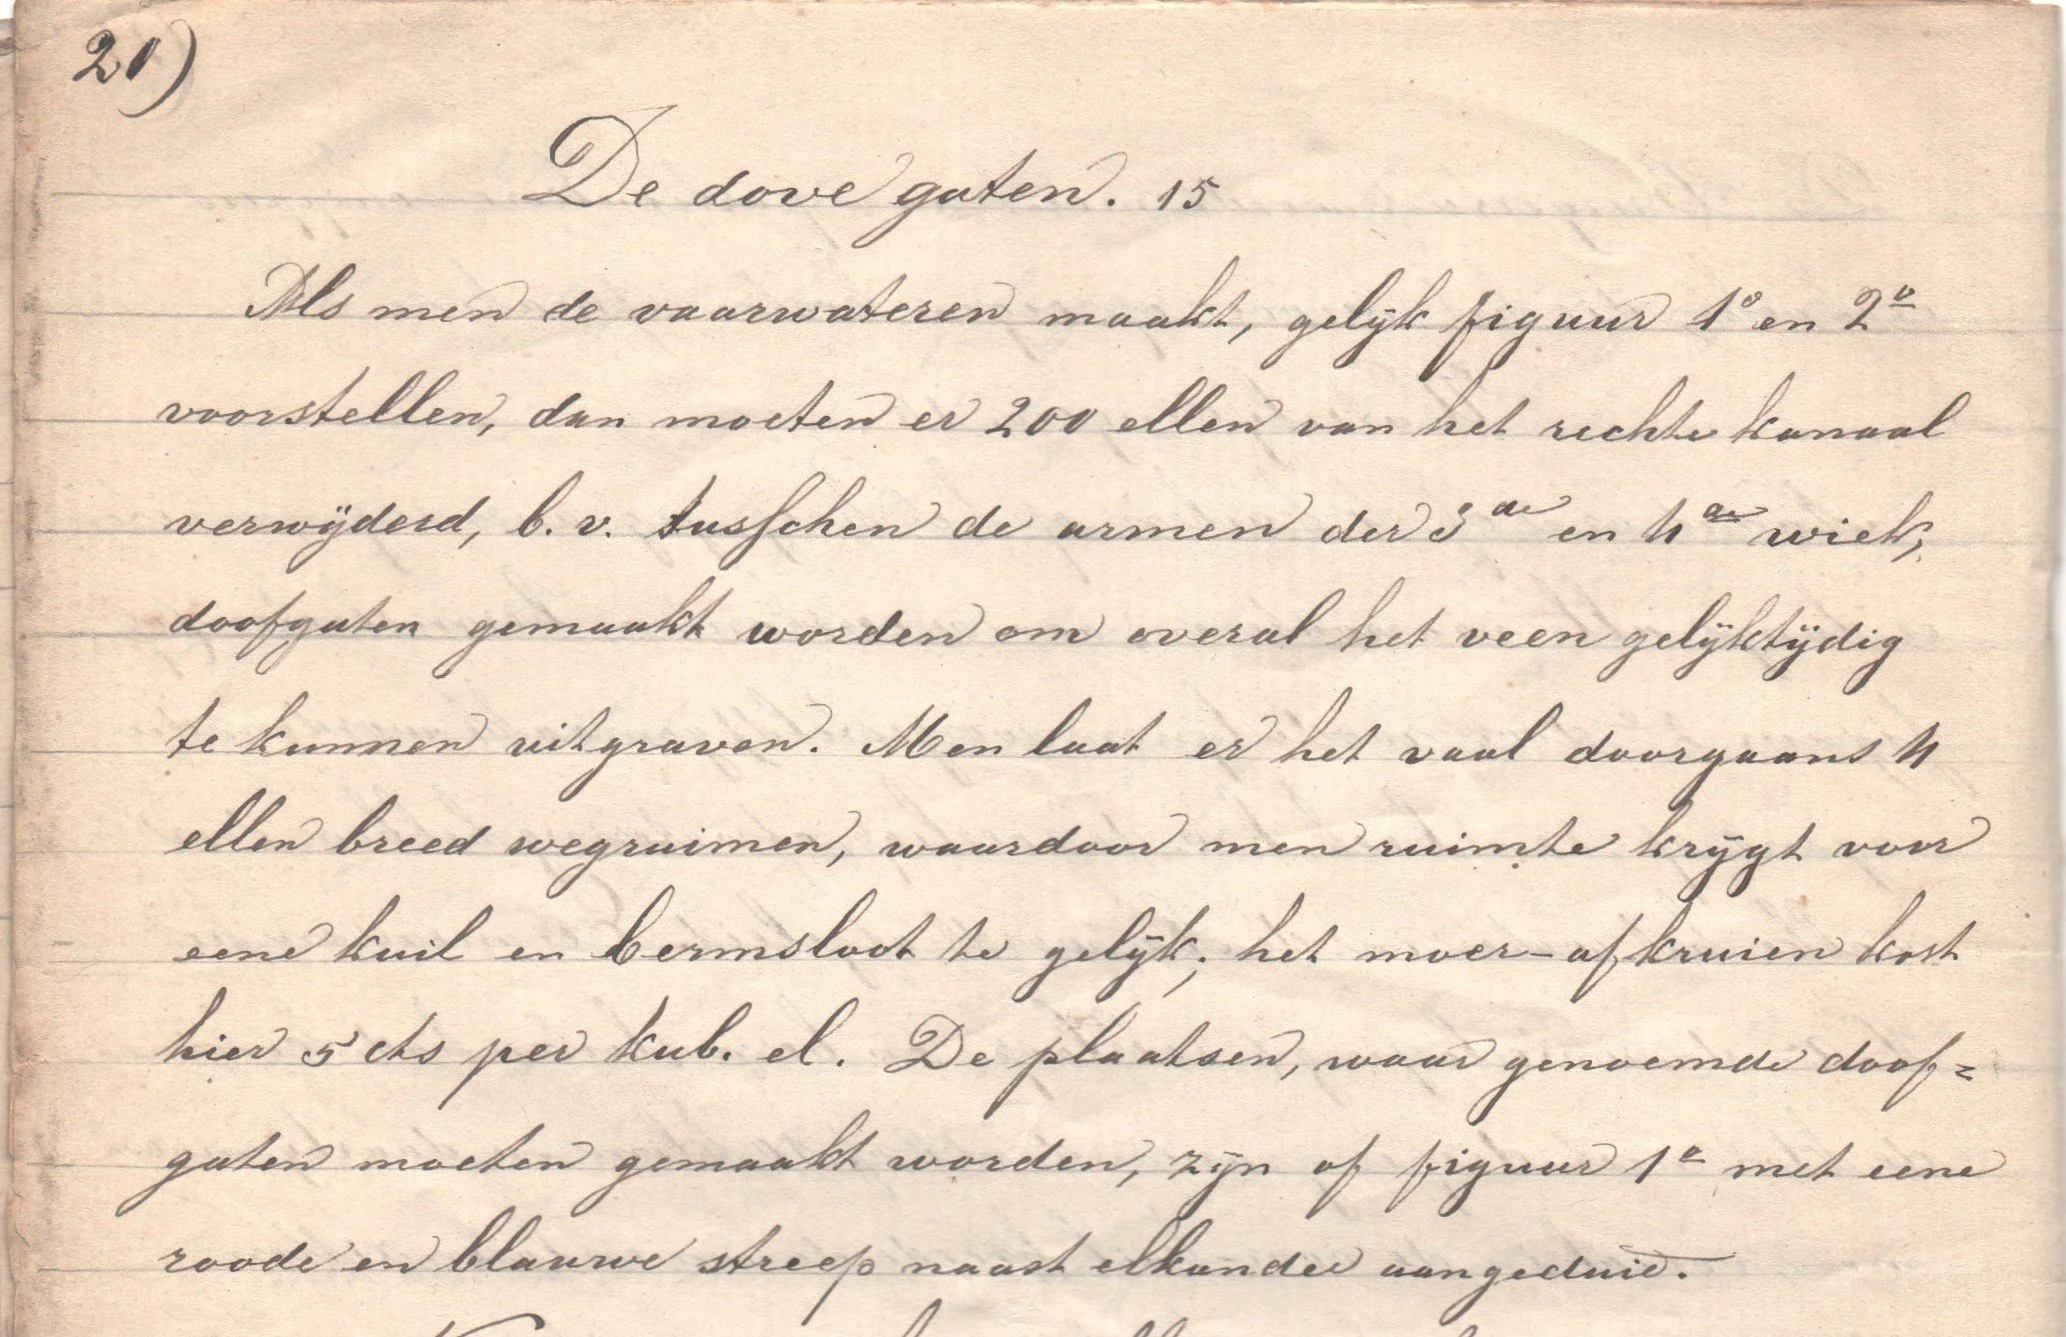 21)
De dove gaten. 15
Als men de vaarwateren maakt, gelijk figuur 1º en 2º
voorstellen, dan moeten er 200 ellen van het rechte kanaal
verwijderd, b. v. tusschen de armen der 3de en 4de wiek,
doofgaten gemaakt worden om overal het veen gelijktijdig
te kunnen uitgraven. Men laat er het vaal doorgaans 4
ellen breed wegruimen, waardoor men ruimte krijgt voor
eene kuil en bermsloot te gelijk; het moer-afkruien kost
hier 5 cts per kub. el. De plaatsen, waar genoemde doof=
gaten moeten gemaakt worden, zijn of figuur 1º met eene
roode en blauwe streep naast elkander aangeduid.